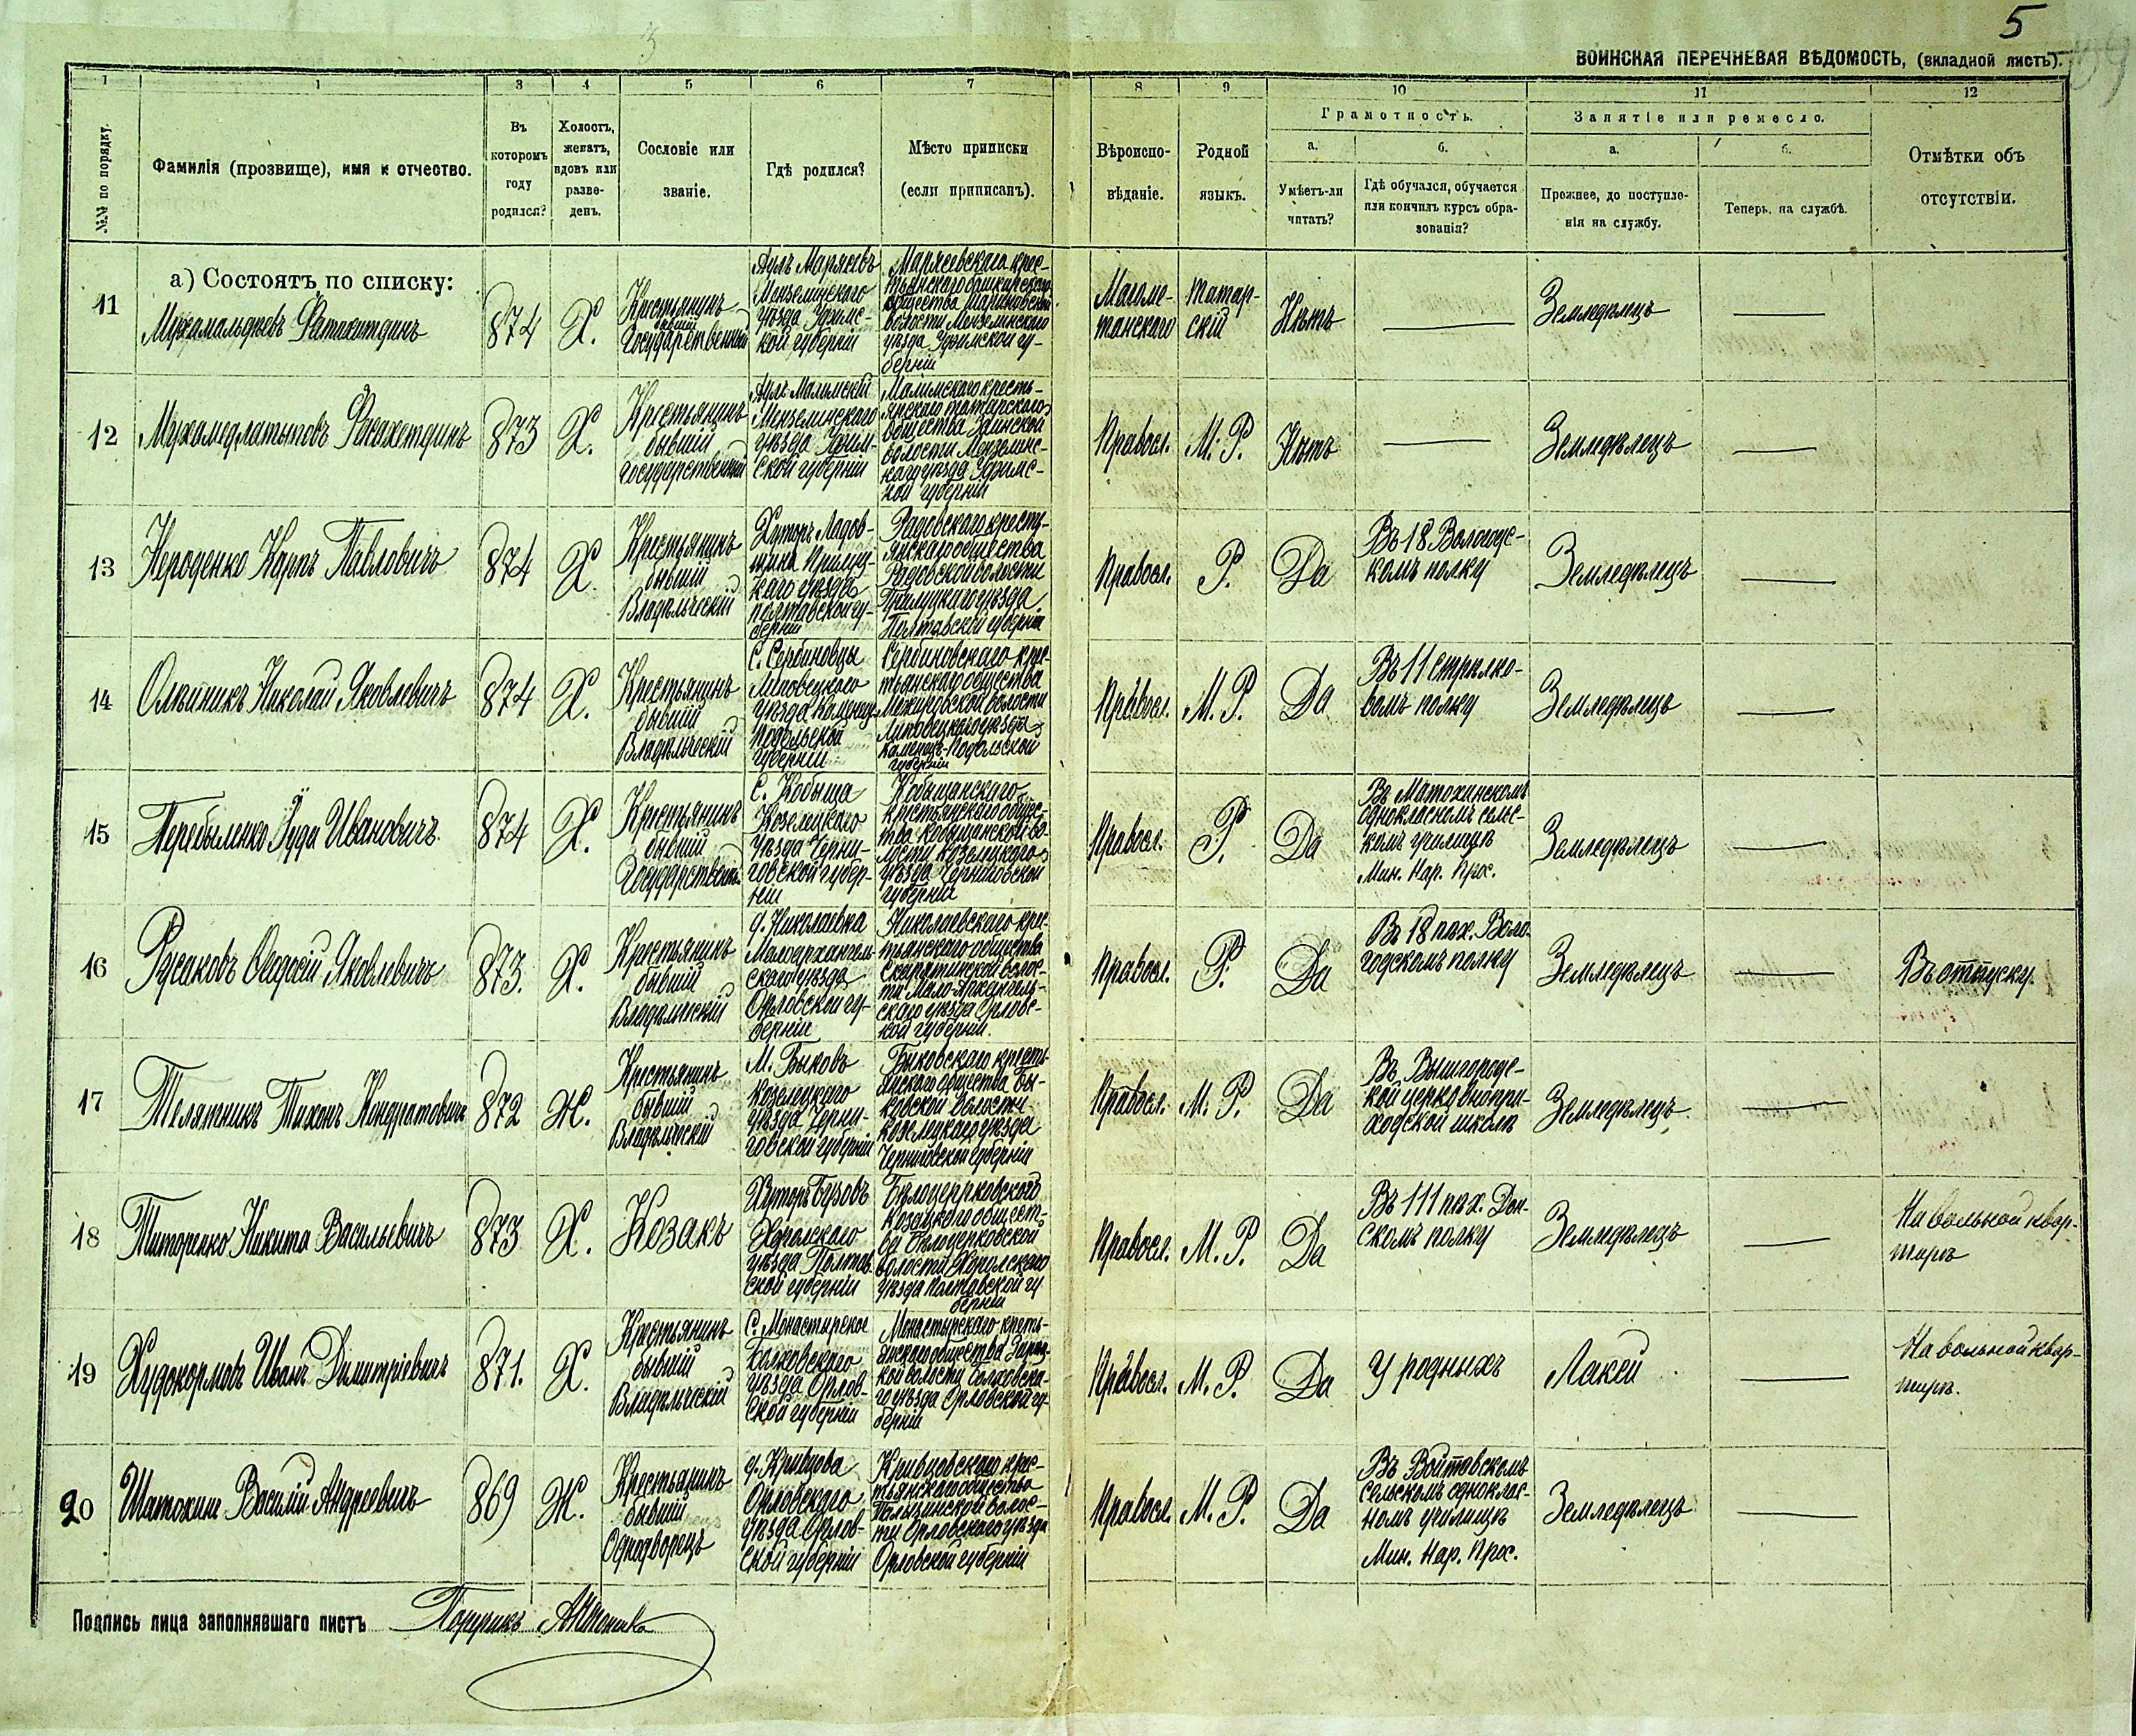 5
ВОИНСКАЯ ПЕРЕЧНЕВАЯ ВѢДОМОСТЬ, (вкладной листъ).
1 1 3 4 5 6 7 8 9 10 11 12
№№ по порядку.
Фамилія (прозвище), имя и отчество.
Въ
которомъ
году
родился?
Холостъ,
женатъ,
вдовъ или
разве-
денъ.
Сословіе или
званіе.
Гдѣ родился?
Мѣсто приписки
(если приписанъ).
Вѣроиспо-
вѣданіе.
Родной
языкъ.
Грамотность.
а.
Умѣетъ-ли
читать?
б.
Гдѣ обучался, обучается
или кончилъ курсъ обра-
зованія?
Занятіе или ремесло.
а.
Прежнее, до поступле-
нія на службу.
б.
Теперь, на службѣ.
Отмѣтки объ
отсутствіи.
а) Состоятъ по списку:
11
Фатахитдинъ
874
Х.
Крестьянинъ
бывшій
Государственный
Аулъ Марясевъ
Мензелинскаго
уѣзда Уфимс-
кой губерніи
Марясевскаго крес-
тьянскаго башкирскаго
общества
волости Мензелинскаго
уѣзда Уфимской гу-
берніи
Магоме-
танскаго
Татар-
скій
Нѣтъ
Земледѣлецъ
12
Мухамедлатыповъ
873
Х.
Крестьянинъ
бывшій
государственный
Аулъ
Мензелинскаго
уѣзда Уфим-
ской губерніи
кресть-
янскаго татарскаго
общества Заинской
волости Мензелинс-
каго уѣзда Уфимс-
кой губерніи
Правосл.
М. Р.
Нѣтъ
Земледѣлецъ
13
Нероденко Карпъ Павловичъ
874
Х.
Крестьянинъ
бывшій
Владѣльческій
Хуторъ Ладов-
щина Прилуц-
каго уѣзда
полтавской гу-
берніи
Радовскаго кресть-
янскаго общества
Радовской волости
Прилуцкаго уѣзда
Полтавской губерніи
Правосл.
Р.
Да
Въ 18 Вологодс-
комъ полку
Земледѣлецъ
14
Олейникъ Николай Яковлевичъ
874
Х.
Крестьянинъ
бывшій
Владѣльческій
С. Сербиновцы
Липовецкаго
уѣзда Каменец-
Подольской
губерніи
Сербиновскаго крес-
тьянскаго общества
Межировской волости
Липовецкаго уѣзда
Каменецъ-Подольской
губерніи
Правосл.
М. Р.
Да
Въ 11 стрѣлко-
вомъ полку
Земледѣлецъ
15
Перебыленко Іуда Ивановичъ
874
Х.
Крестьянинъ
бывшій
Государствен.
С. Кобыща
Козелецкаго
уѣзда Черни-
говской губер-
ніи
Кобыщанскаго
крестьянскаго общес-
тва Кобыщанской во-
лости Козелецкаго
уѣзда Черниговской
губерніи
Правосл.
Р.
Да
Въ Матохинскомъ
однокласномъ сельс-
комъ училищѣ
Мин. Нар. Прос.
Земледѣлецъ
16
Русаковъ Ѳеодосій Яковлевичъ
873.
Х.
Крестьянинъ
бывшій
Владѣльческій
д. Николаевка
Малоархангель-
скаго уѣзда
Орловской гу-
берніи
Николаевскаго крес-
тьянскаго общества
Скарятинской волос-
ти Мало-Архангель-
скаго уѣзда Орловс-
кой губерніи.
Правосл.
Р.
Да
Въ 18 пѣх. Воло-
годскомъ полку
Земледѣлецъ
Въ отпуску.
17
Телятникъ Тихонъ Кондратовичъ
872
Ж.
Крестьянинъ
бывшій
Владѣльческій
М. Быковъ
Козелецкаго
уѣзда Черни-
говской губерніи
Быковскаго кресть-
янскаго общества Бы-
ковской волости
Козелецкаго уѣзда
Черниговской губерніи
Правосл.
М. Р.
Да
Въ Вышгородс-
кой церковнопри-
ходской школѣ
Земледѣлецъ
18
Титоренко Никита Васильевичъ
873
Х.
Козакъ
Хуторъ Бузовъ
Хорольскаго
уѣзда Полтав-
ской губерніи
Бѣлоцерковскаго
козацкаго общест-
ва Бѣлоцерковской
волости Хорольскаго
уѣзда Полтавской гу
берніи
Правосл.
М. Р.
Да
Въ 111 пѣх. Дон-
скомъ полку
Земледѣлецъ
На вольной квар-
тирѣ
19
Худокормовъ Иванъ Димитріевичъ
871.
Х.
Крестьянинъ
бывшій
Владѣльческій
С. Монастырское
Болховскаго
уѣзда Орлов-
ской губерніи
Монастырскаго кресть-
янскаго общества
кой волости Болховска-
го уѣзда Орловской гу-
берніи
Правосл.
М. Р.
Да
У родныхъ
Лакей
На вольной квар-
тирѣ.
20
Шатохинъ Василій Андреевичъ
869
Ж.
Крестьянинъ
бывшій
Однодворецъ
д. Кривцова
Орловскаго
уѣзда Орлов-
ской губерніи
Кривцовскаго крес-
тьянскаго общества
волос-
ти Орловскаго уѣзда
Орловской губерніи
Правосл.
М. Р.
Да
Въ Войтовскомъ
сельскомъ однокла-
номъ училищѣ
Мин. Нар. Прос.
Земледѣлецъ
Подпись лица заполнявшаго листъ Поручикъ